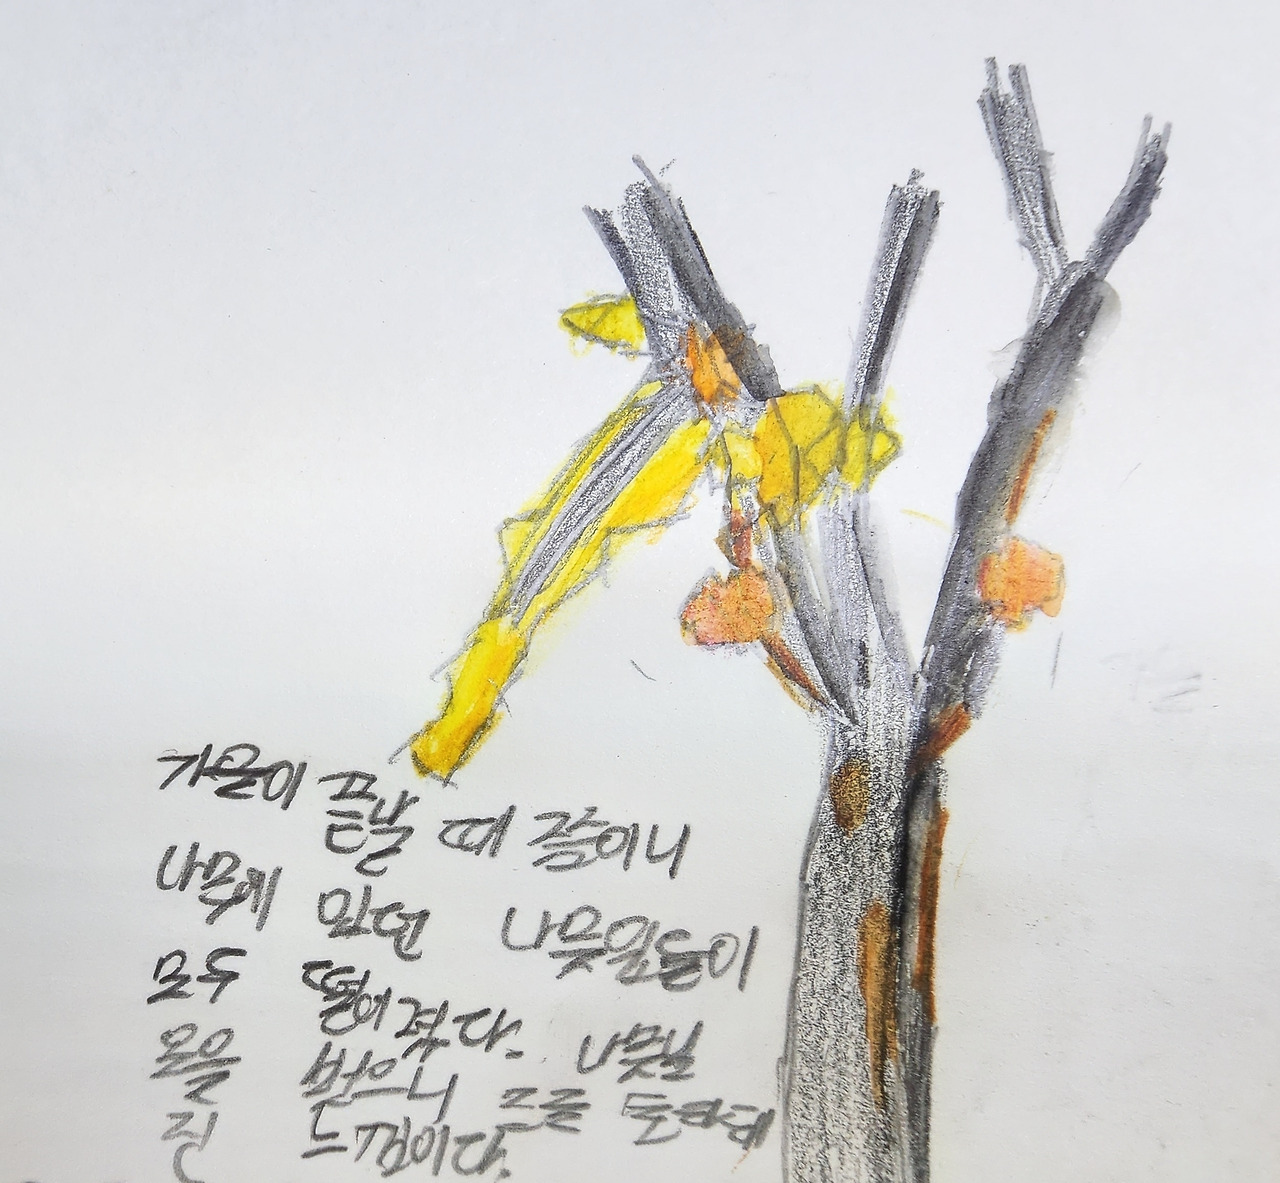 가을이 끝날 때 쯤이니
나무에 있던 나뭇잎들이
모두 떨어졌다. 나뭇잎
옷을 벗으니
진 느낌이다.